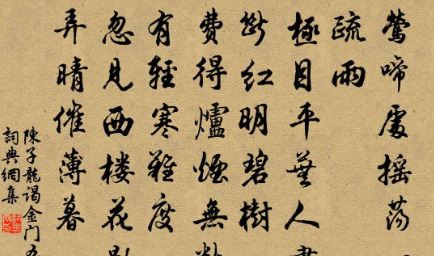 鶯啼處搖蕩一
疏雨
極目平蕪人盡
斷紅明碧樹
費得爐煙無數
有輕寒難度
忽見西楼花影
弄晴催薄暮
陳子龍谒金门 五
詞典網集